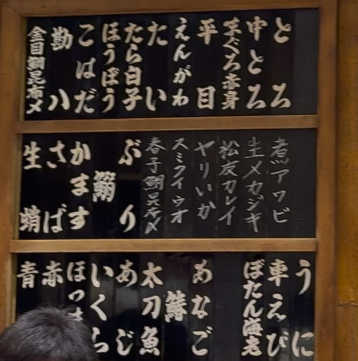 とろ
中とろ
まぐろ赤身
平目
えんがわ
たい
たら白子
ほうぼう
こはだ
勘八
金目鯛昆布〆
煮アワビ
生メカジキ
松皮カレイ
ヤリいか
スミイカ
春子鯛昆布〆
ぶり
鰯
かます
さば
生蛸
うに
車えび
ぼたん海老
あなご
太刀魚
あじ
いくら
赤
青